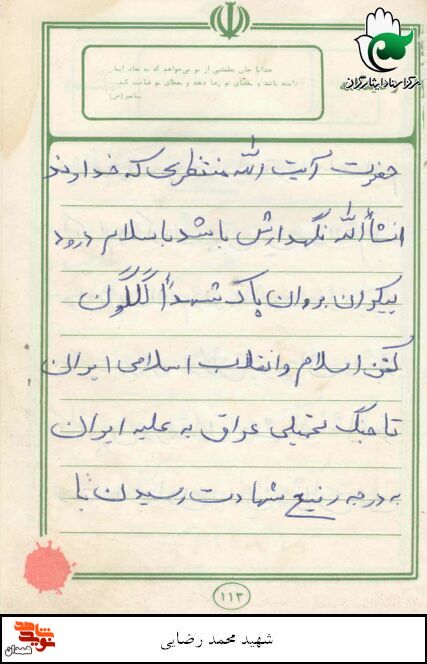 مرکز اسناد ایثارگران
خدایا جان مطمئنی از تو می‌خواهم که به معاد ایمان
داشته باشد و بقضای تو رضا دهد و بعطای تو قناعت کند
پیامبر (ص)
حضرت آیت الله منتظری که خداوند
انشأالله نگهدارش باشد باسلام درود
بیکران بروان پاک شهدأ گلگون
کفن اسلام وانقلاب اسلامی ایران
تا جنگ تحمیلی عراق به علیه ایران
به درجه رفیع شهادت رسیدن با
۱۱۳
شهید محمد رضایی
نوید شاهد
همدان